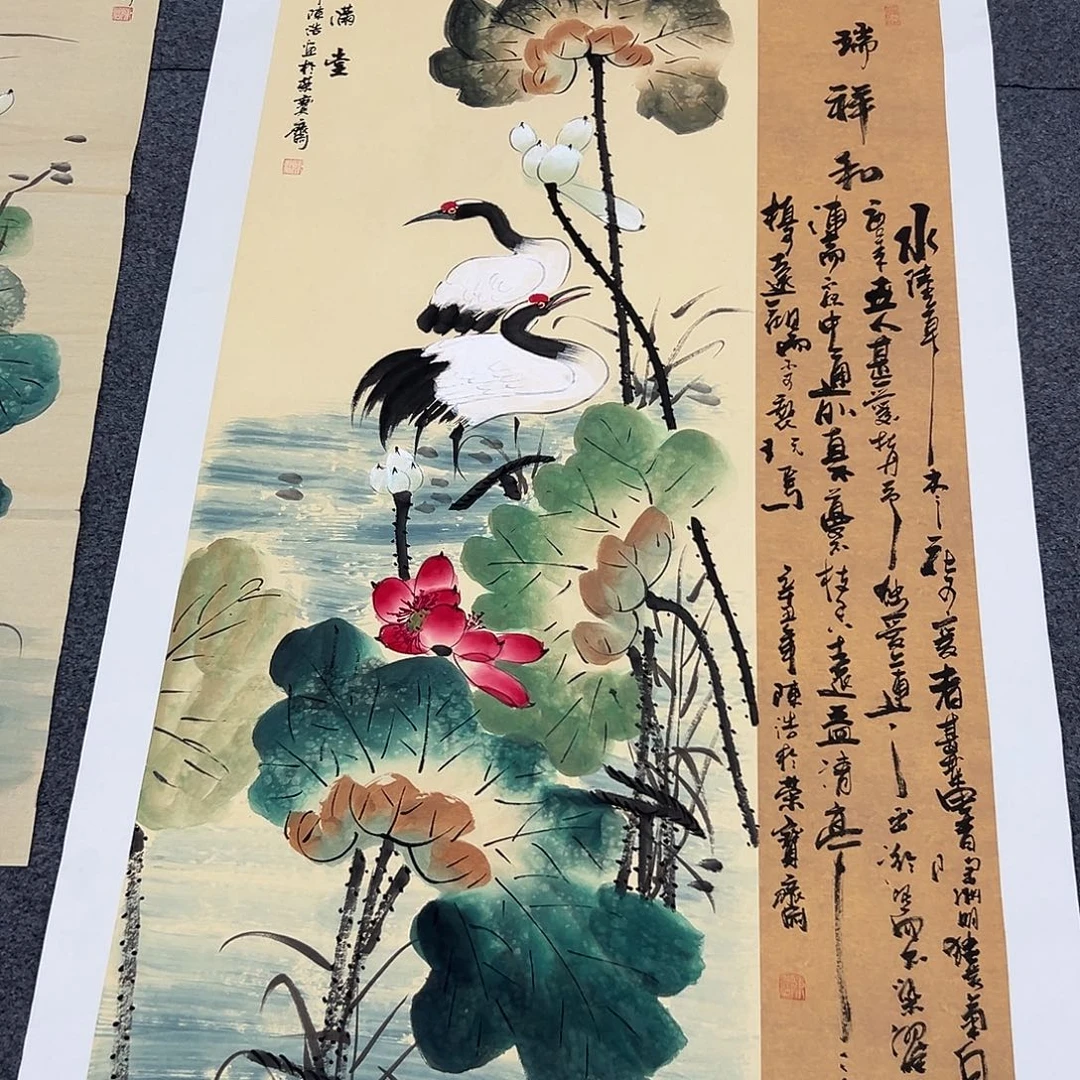 瑞祥和
水陸草木之花可愛者甚蕃晉陶淵明獨愛菊自
世人甚愛牡丹予独愛蓮之出淤泥而不染濯
漣而中通外直不蔓不枝遠益清亭
植可遠觀而不可褻玩焉
辛丑年陳浩於榮寶齋
滿堂
陳浩寫於榮寶齋